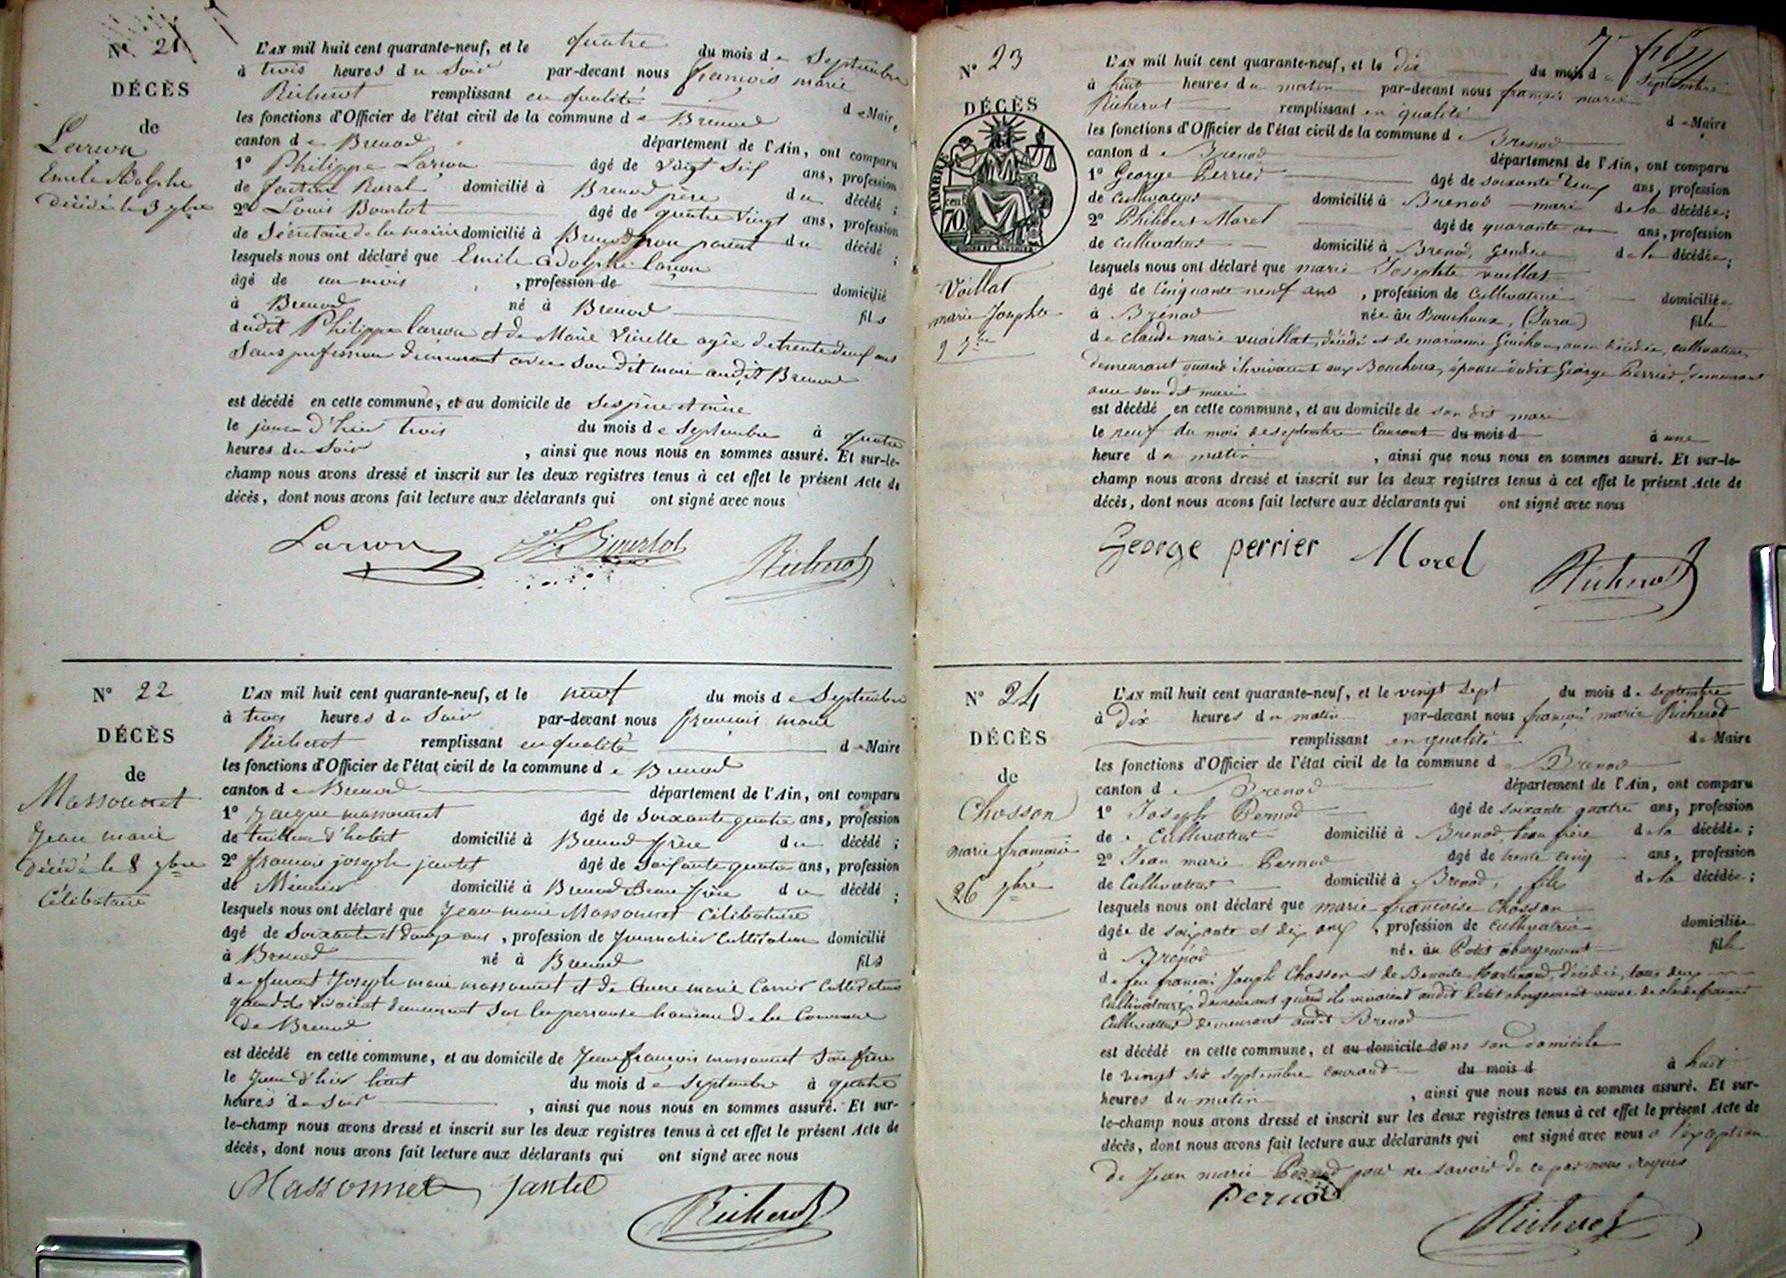 N° 21
DÉCÈS
de
Larron
Emile Adolphe
Décédé le 3 7bre
L'AN mil huit cent quarante-neuf, et le quatre du mois de Septembre
à trois heures du Soir par-devant nous françois marie
Richerot remplissant en qualité de Maire,
les fonctions d'Officier de l'état civil de la commune de Brenod
canton de Brenod département de l'Ain, ont comparu
1° Philippe Larron âgé de vingt six ans, profession
de facteur Rural domicilié à Brenod père du décédé ;
2° Louis Bourlot âgé de quatre vingt ans, profession
de Sécretaire de la mairie domicilié à Brenod non parent du décédé ;
lesquels nous ont déclaré que Emile adolphe larron
âgé de un mois , profession de domicilié
à Brenod né à Brenod fils
dudit Philippe larron et de Marie agée de trente deux ans
Sans profession demeurant avec Son dit mari audit Brenod
est décédé en cette commune, et au domicile de Ses père et mère
le jour d'hier trois du mois de Septembre à quatre
heures du Soir , ainsi que nous nous en sommes assuré. Et sur-le-
champ nous avons dressé et inscrit sur les deux registres tenus à cet effet le présent Acte de
décès, dont nous avons fait lecture aux déclarants qui ont signé avec nous
Larron L. Bourlot Richerot
N° 22
DÉCÈS
de
Massonnet
Jean marie
Décédé le 8 7bre
Célibataire
L'AN mil huit cent quarante-neuf, et le neuf du mois de Septembre
à trois heures du Soir par-devant nous françois marie
Richerot remplissant en qualité de Maire
les fonctions d'Officier de l'état civil de la commune de Brenod
canton de Brenod département de l'Ain, ont comparu
1° Jacque massonnet âgé de Soixante quatre ans, profession
de tailleur d'habit domicilié à Brenod frère du décédé ;
2° francois joseph jantet âgé de Soixante quatre ans, profession
de Menuisier domicilié à Brenod Beau frère du décédé ;
lesquels nous ont déclaré que Jean marie Massonnet Célibataire
âgé de Soixante et douze ans , profession de Journalier Cultivateur domicilié
à Brenod né à Brenod fils
de furent Joseph marie massonnet et de Anne marie Carrier Cultivateurs
quand ils vivaient demeurant Sur hameau de la Commune
de Brenod
est décédé en cette commune, et au domicile de Jean françois massonnet Son frère
le Jour d'hier huit du mois de Septembre à quatre
heures de Soir , ainsi que nous nous en sommes assuré. Et sur-
le-champ nous avons dressé et inscrit sur les deux registres tenus à cet effet le présent Acte de
décès, dont nous avons fait lecture aux déclarants qui ont signé avec nous
Massonnet jantet
Richerot
N° 23
DÉCÈS
TIMBRE
cent
70
Voillat
marie Josephte
9 7bre
L'AN mil huit cent quarante-neuf, et le dix du mois de Septembre
à huit heures du matin par-devant nous françois marie
Richerot remplissant en qualité de Maire
les fonctions d'Officier de l'état civil de la commune de Brenod
canton de Brenod département de l'Ain, ont comparu
1° George Perrier âgé de soixante deux ans, profession
de cultivateur domicilié à Brenod mari de la décédée;
2° Philibert Morel âgé de quarante un ans, profession
de cultivateur domicilié à Brenod, Gendre de la décédée;
lesquels nous ont déclaré que marie Josephte voillat
âgé de Cinquante neuf ans , profession de Cultivatrice domiciliée
à Brenod née aux Bouchoux, (Jura) fille
de claude marie vuaillat, décédé et de marianne aussi décédée, cultivateurs
demeurant quand ils vivaient aux Bouchoux, épouse dudit George Perrier, demeurant
avec son dit mari
est décédé en cette commune, et au domicile de son dit mari
le neuf du mois de septembre Courant du mois d à une
heure du matin , ainsi que nous nous en sommes assuré. Et sur-le-
champ nous avons dressé et inscrit sur les deux registres tenus à cet effet le présent Acte de
décès, dont nous avons fait lecture aux déclarants qui ont signé avec nous
George perrier Morel
Richerot
N° 24
DÉCÈS
de
Chosson
marie françoise
26 7bre
L'AN mil huit cent quarante-neuf, et le vingt sept du mois de septembre
à Dix heures du matin par-devant nous françois marie Richerot
remplissant en qualité de Maire
les fonctions d'Officier de l'état civil de la commune de Brenod
canton de Brenod département de l'Ain, ont comparu
1° Joseph Pernod âgé de soixante quatre ans, profession
de Cultivateur domicilié à Brenod, beau frère de la décédée;
2° Jean marie Pernod âgé de trente cinq ans, profession
de Cultivateur domicilié à Brenod, fils de la décédée;
lesquels nous ont déclaré que marie françoise Chosson
âgée de soixante et dix ans , profession de cultivatrice domiciliée
à Brenod née au Petit abergement fille
de feu françois Joseph Chosson et de Benoite Martinand, décédés, tous deux
Cultivateurs, demeurant quand ils vivaient audit Petit abergement veuve de
Cultivateur demeurant audit Brenod
est décédé en cette commune, et au domicile dans son domicile
le vingt six septembre courant du mois d à huit
heures du matin , ainsi que nous nous en sommes assuré. Et sur-
le-champ nous avons dressé et inscrit sur les deux registres tenus à cet effet le présent Acte de
décès, dont nous avons fait lecture aux déclarants qui ont signé avec nous à l'exception
de Jean marie Pernod pour ne savoir de ce par nous Requis
Pernod
Richerot